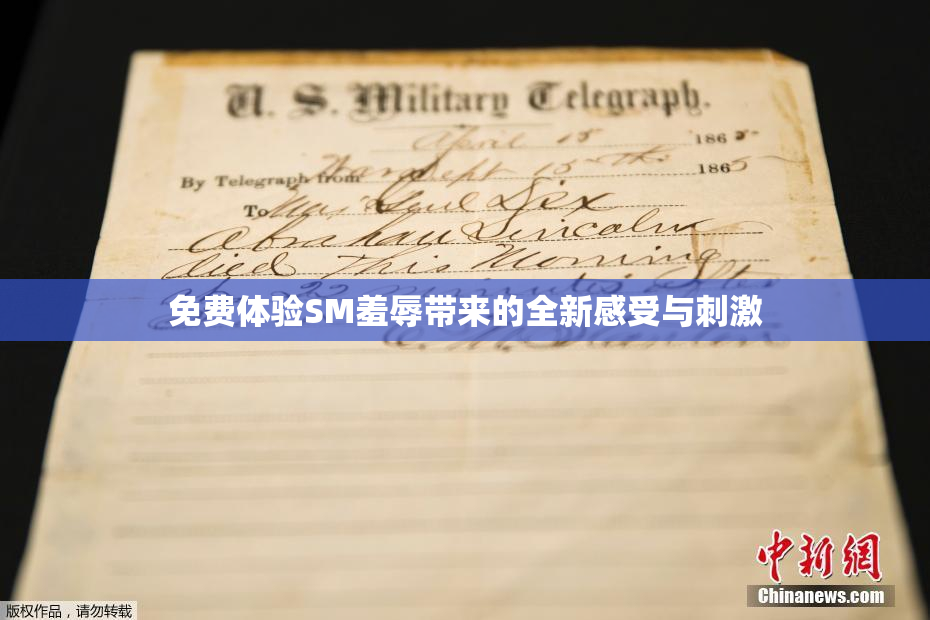 U. S. Military Telegraph.
April 15 1865
By Telegraph from War Dept 15th 1865
To Maj Genl Dix
Abraham Lincoln
died this morning
at 22 minutes after
免费体验SM羞辱带来的全新感受与刺激
E. M. Stanton
中新网
Chinanews.com
版权作品，请勿转载